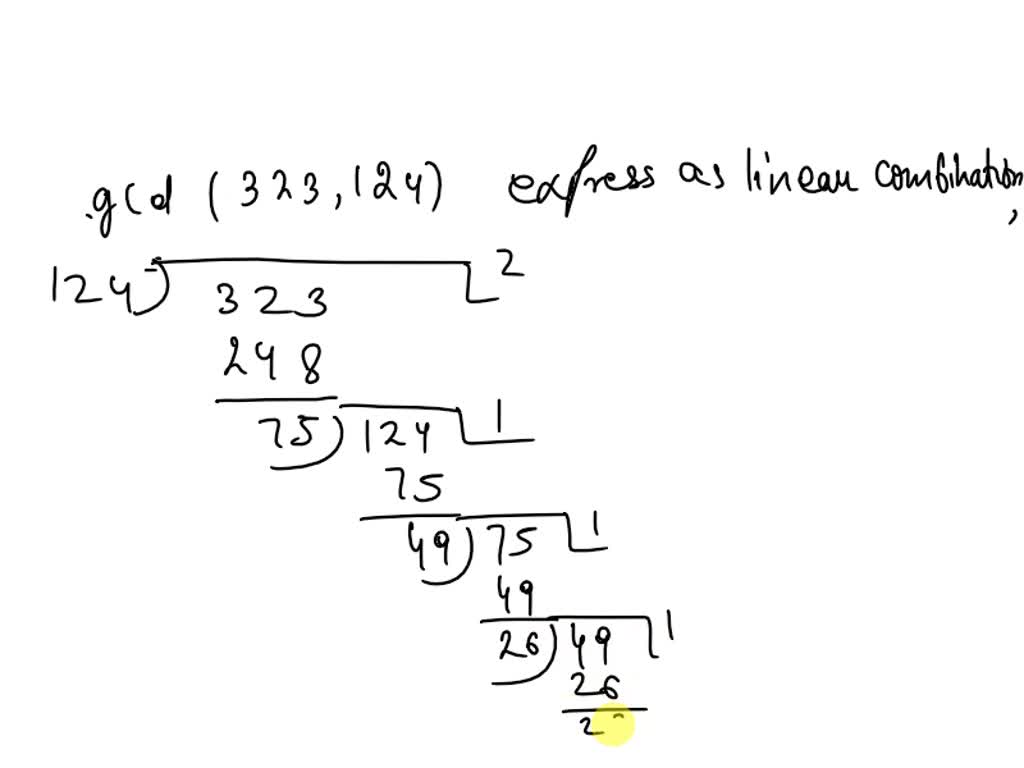 gcd (323, 124) express as linear combination,
124) 323 2
248
75) 124 1
75
49) 75 1
49
26) 49 1
26
2